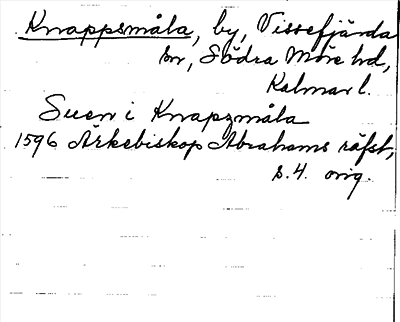 Knappsmåla, by, Vissefjärda
sn, Södra Möre hd,
Kalmar l.
Suen i Knapzmåla
1596 Ärkebiskop Abrahams räfst,
s. 4. orig.